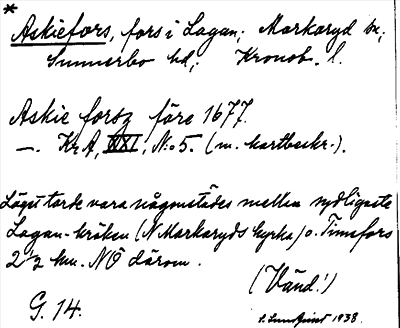 * Askiefors, fors i Lagan; Markaryd sn;
Sunnerbo hd; Kronob. l.
Askie forsz före 1677.
—. KrA, XXI, No 5. (m. kartbeskr.).
Läget torde vara någonstädes mellan sydligaste
Lagan-kröken (N Markaryds kyrka) o. Timsfors
2 1/2 km. NÖ därom.
(Vänd!)
G. 14.
1938